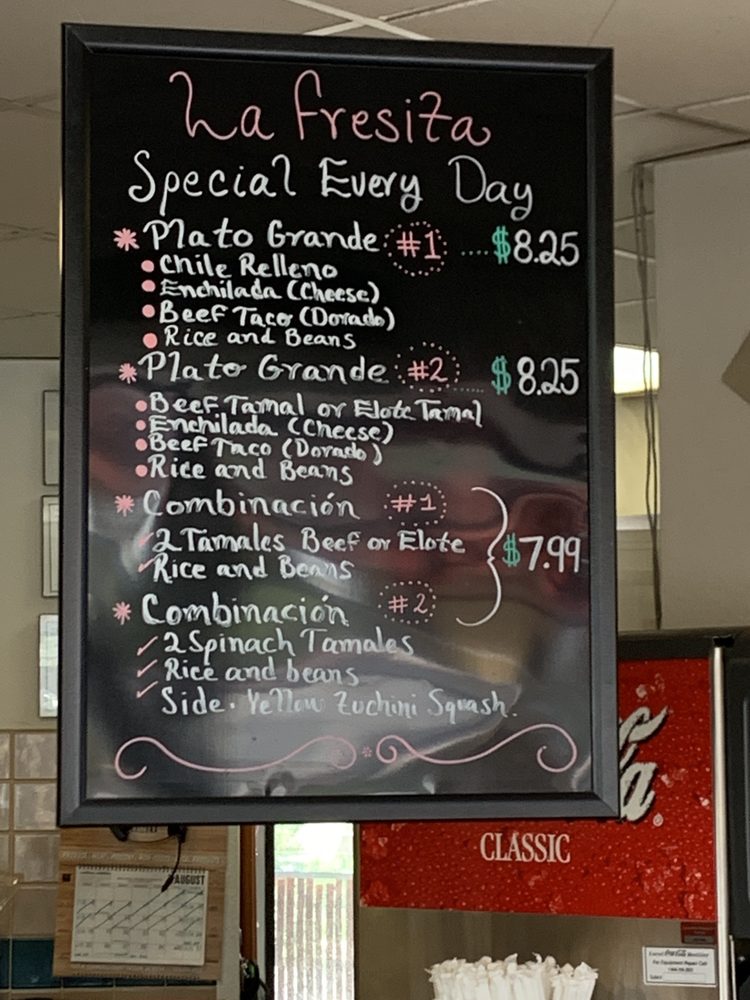 La Fresita
Special Every Day
* Plato Grande #1 .... $8.25
• Chile Relleno
• Enchilada (Cheese)
• Beef Taco (Dorado)
• Rice and Beans
* Plato Grande #2 ..... $8.25
• Beef Tamal or Elote Tamal
• Enchilada (Cheese)
• Beef Taco (Dorado)
• Rice and Beans
* Combinación #1
✓ 2 Tamales Beef or Elote
$7.99
✓ Rice and Beans
* Combinación #2
✓ 2 Spinach Tamales
✓ Rice and beans
✓ Side. Yellow Zuchini Squash.
CLASSIC
AUGUST